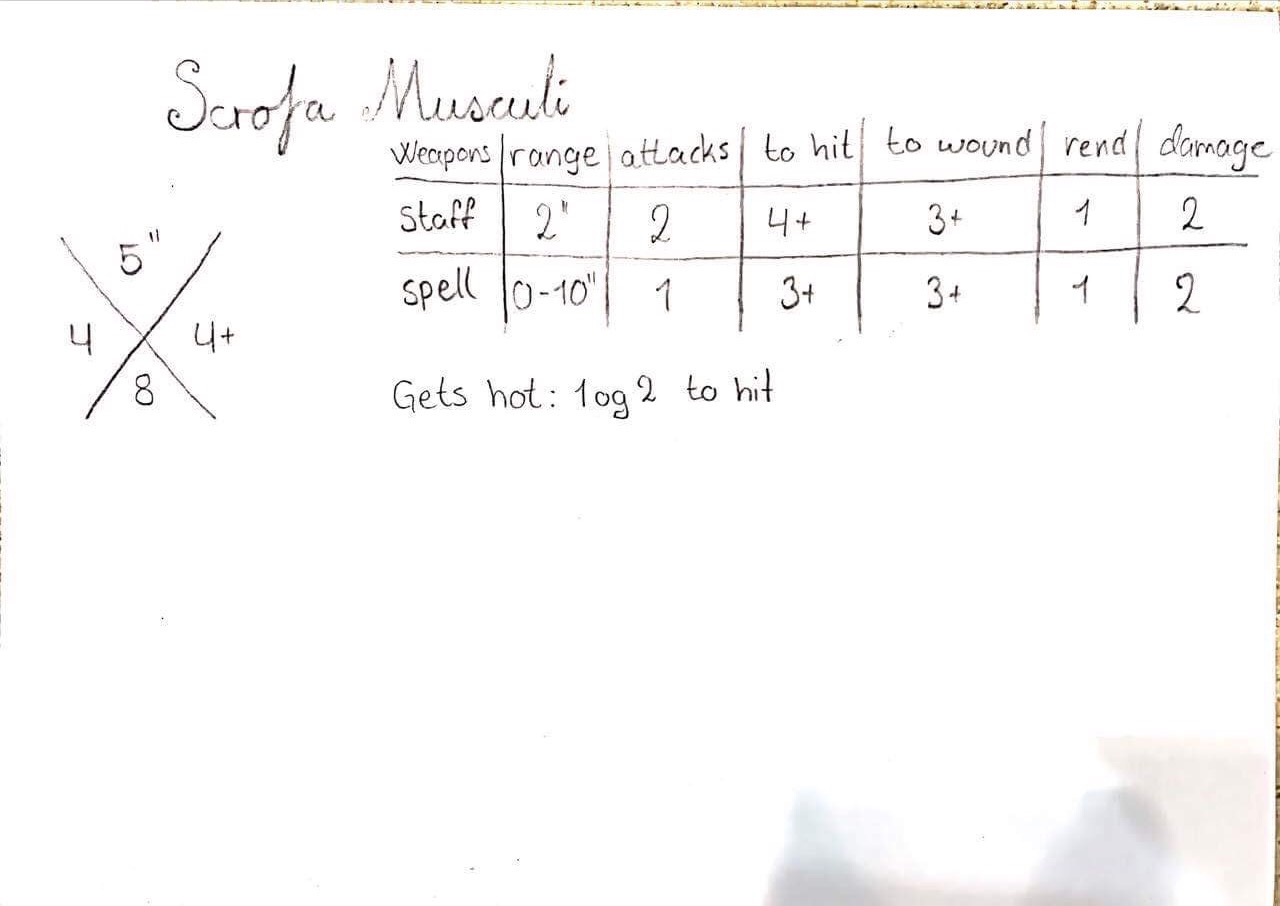 Scrofa Musculi
Weapons range attacks to hit to wound rend damage
Staff 2" 2 4+ 3+ 1 2
spell 0-10" 1 3+ 3+ 1 2
5"
4 4+
8
Gets hot: 1 og 2 to hit